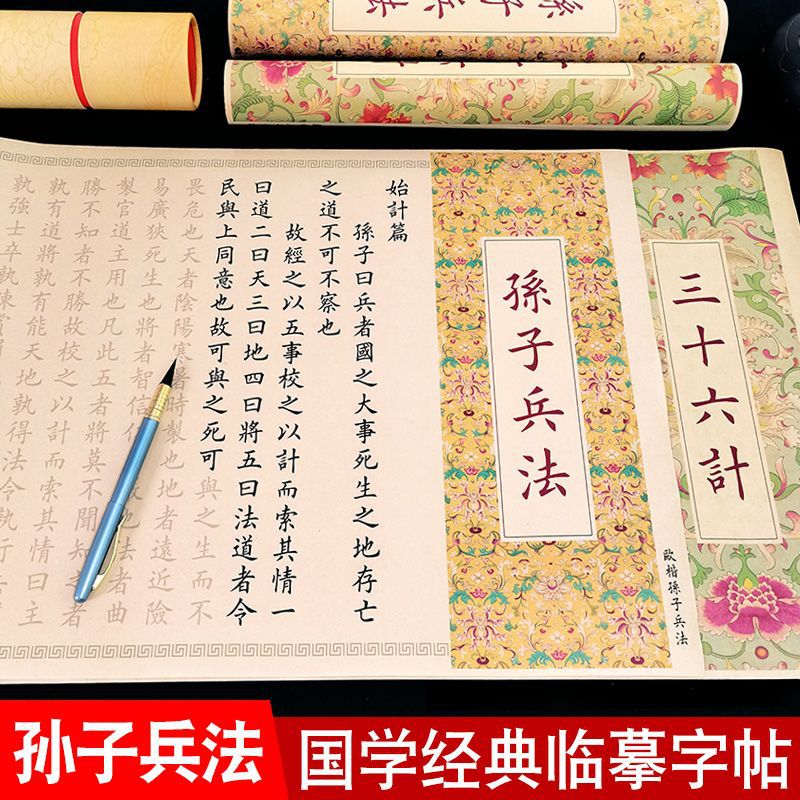 孫子兵法
三十六計
歐楷孫子兵法
孫子兵法
始計篇
孫子曰兵者國之大事死生之地存亡
之道不可不察也
故經之以五事校之以計而索其情一
曰道二曰天三曰地四曰將五曰法道者令
民與上同意也故可與之死可與之生而不
畏危也天者陰陽寒暑時製也地者遠近險
易廣狹死生也將者智信也法者曲
製官道主用也凡此五者將莫不聞知者
勝不知者不勝故校之以計而索其情曰主
孰有道將孰有能天地孰得法令孰行兵
孰強士卒孰練賞
孙子兵法
国学经典临摹字帖